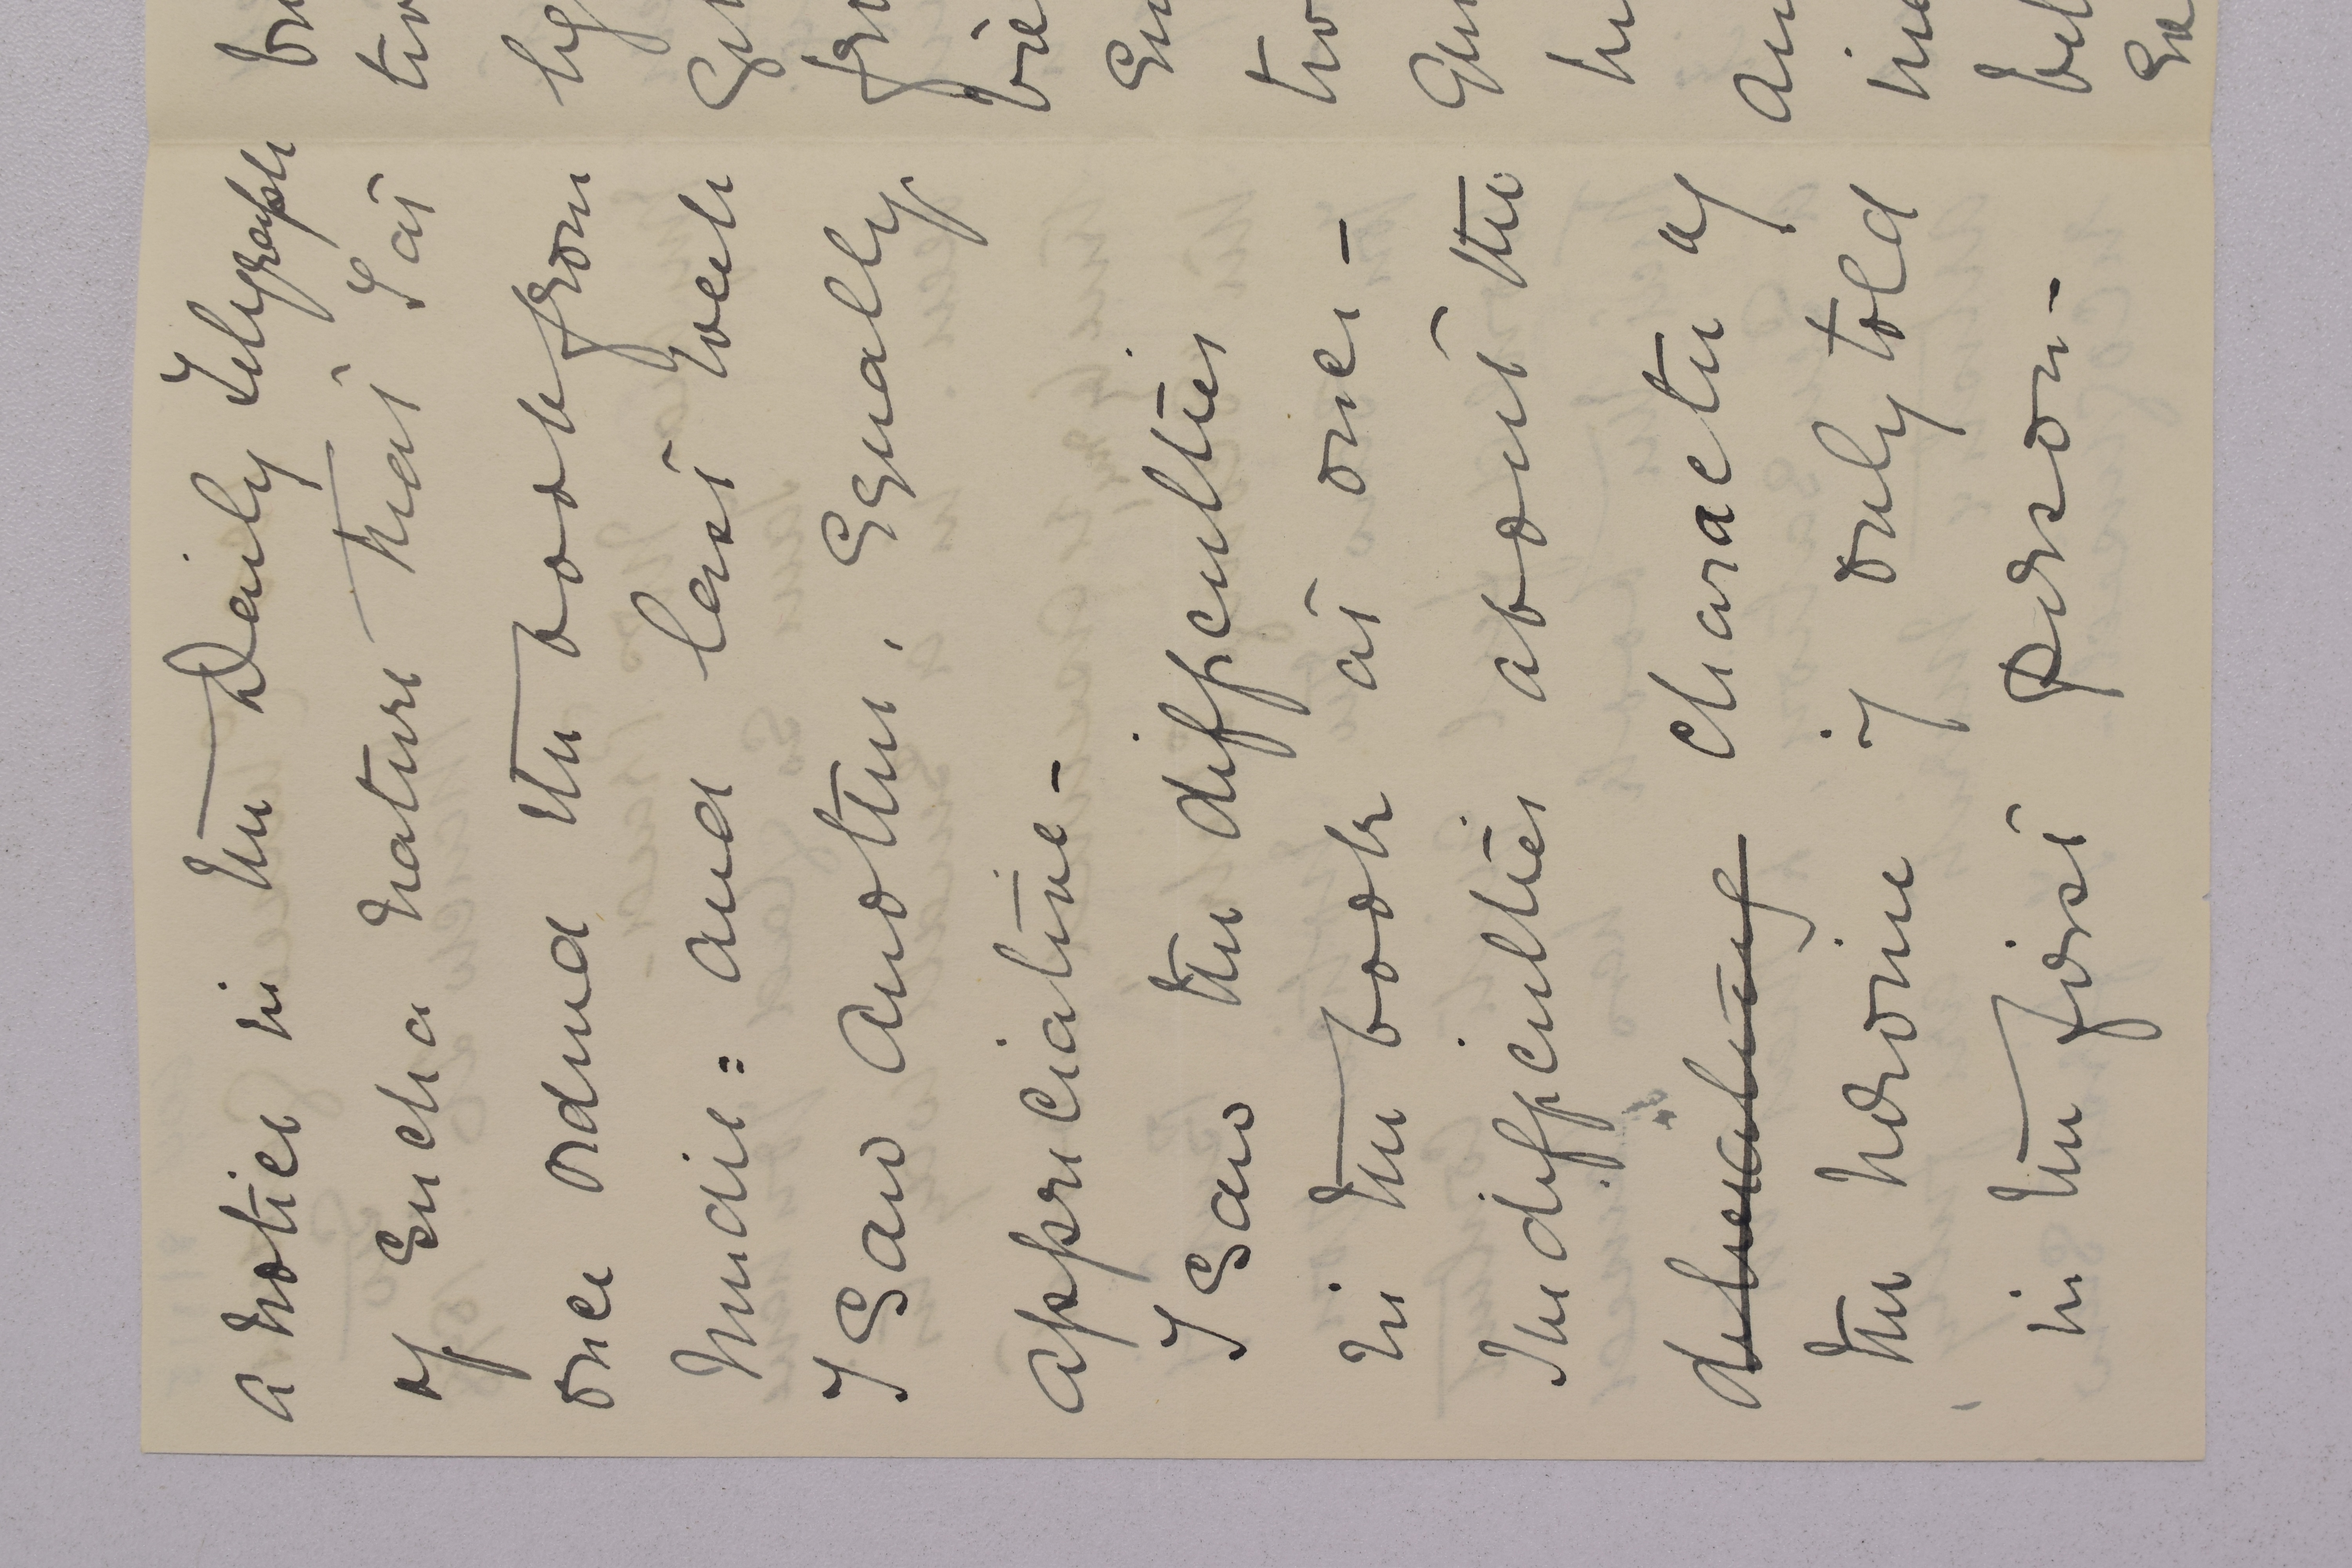 a notice in the Daily Telegraph
of such a nature that I at
once ordered the book from
Mudie: and last week
I saw another, equally
appreciative -
I saw the difficulties
in the book at once -
The difficulties about the
delineating character of
the heroine if only told
in the first person -